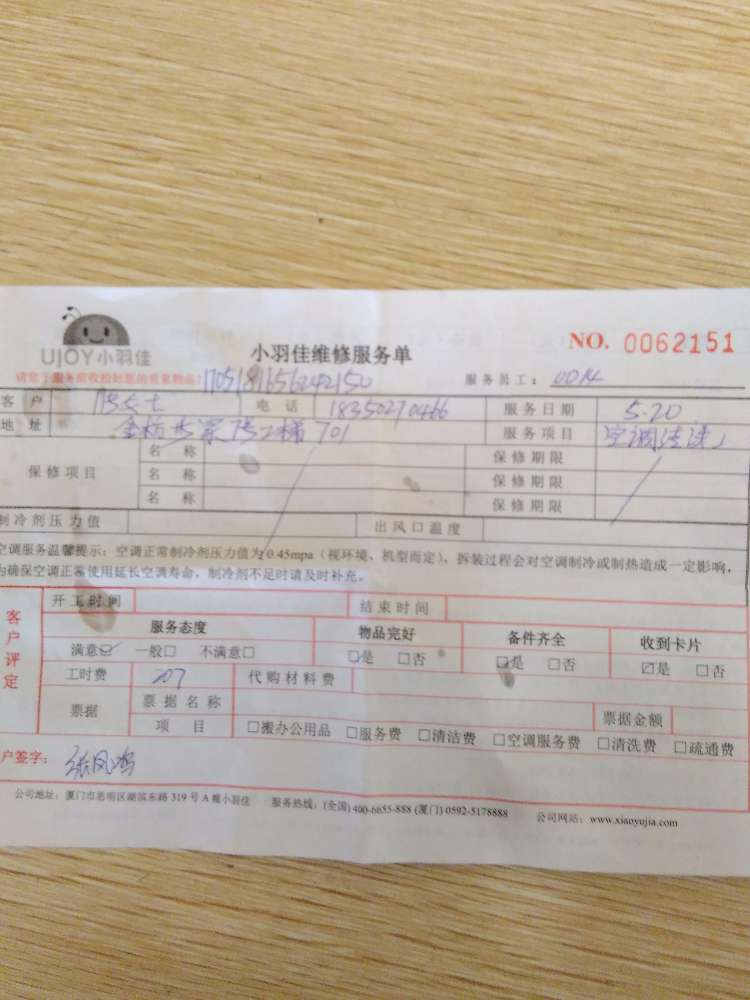 UJOY小羽佳
小羽佳维修服务单
NO. 0062151
请您于服务前收检好您的贵重物品!
服务员工: 0014
客户 电话 18350270466 服务日期 5.20
地址 701 服务项目 空调清洗
保修项目
名称 保修期限
名称 保修期限
名称 保修期限
制冷剂压力值 出风口温度
空调服务温馨提示: 空调正常制冷剂压力值为0.45mpa (视环境、机型而定), 拆装过程会对空调制冷或制热造成一定影响,
为确保空调正常使用延长空调寿命, 制冷剂不足时请及时补充。
客户评定
开工时间 结束时间
服务态度 物品完好 备件齐全 收到卡片
满意☑ 一般□ 不满意□ ☑是 □否 ☑是 □否 ☑是 □否
工时费 207 代购材料费
票据 票据名称 票据金额
项目 □搬办公用品 □服务费 □清洁费 □空调服务费 □清洗费 □疏通费
户签字: 张凤鸿
公司地址: 厦门市思明区湖滨东路 319 号 A 幢小羽佳 服务热线: (全国) 400-6655-888 (厦门) 0592-5178888 公司网站: www.xiaoyujia.com